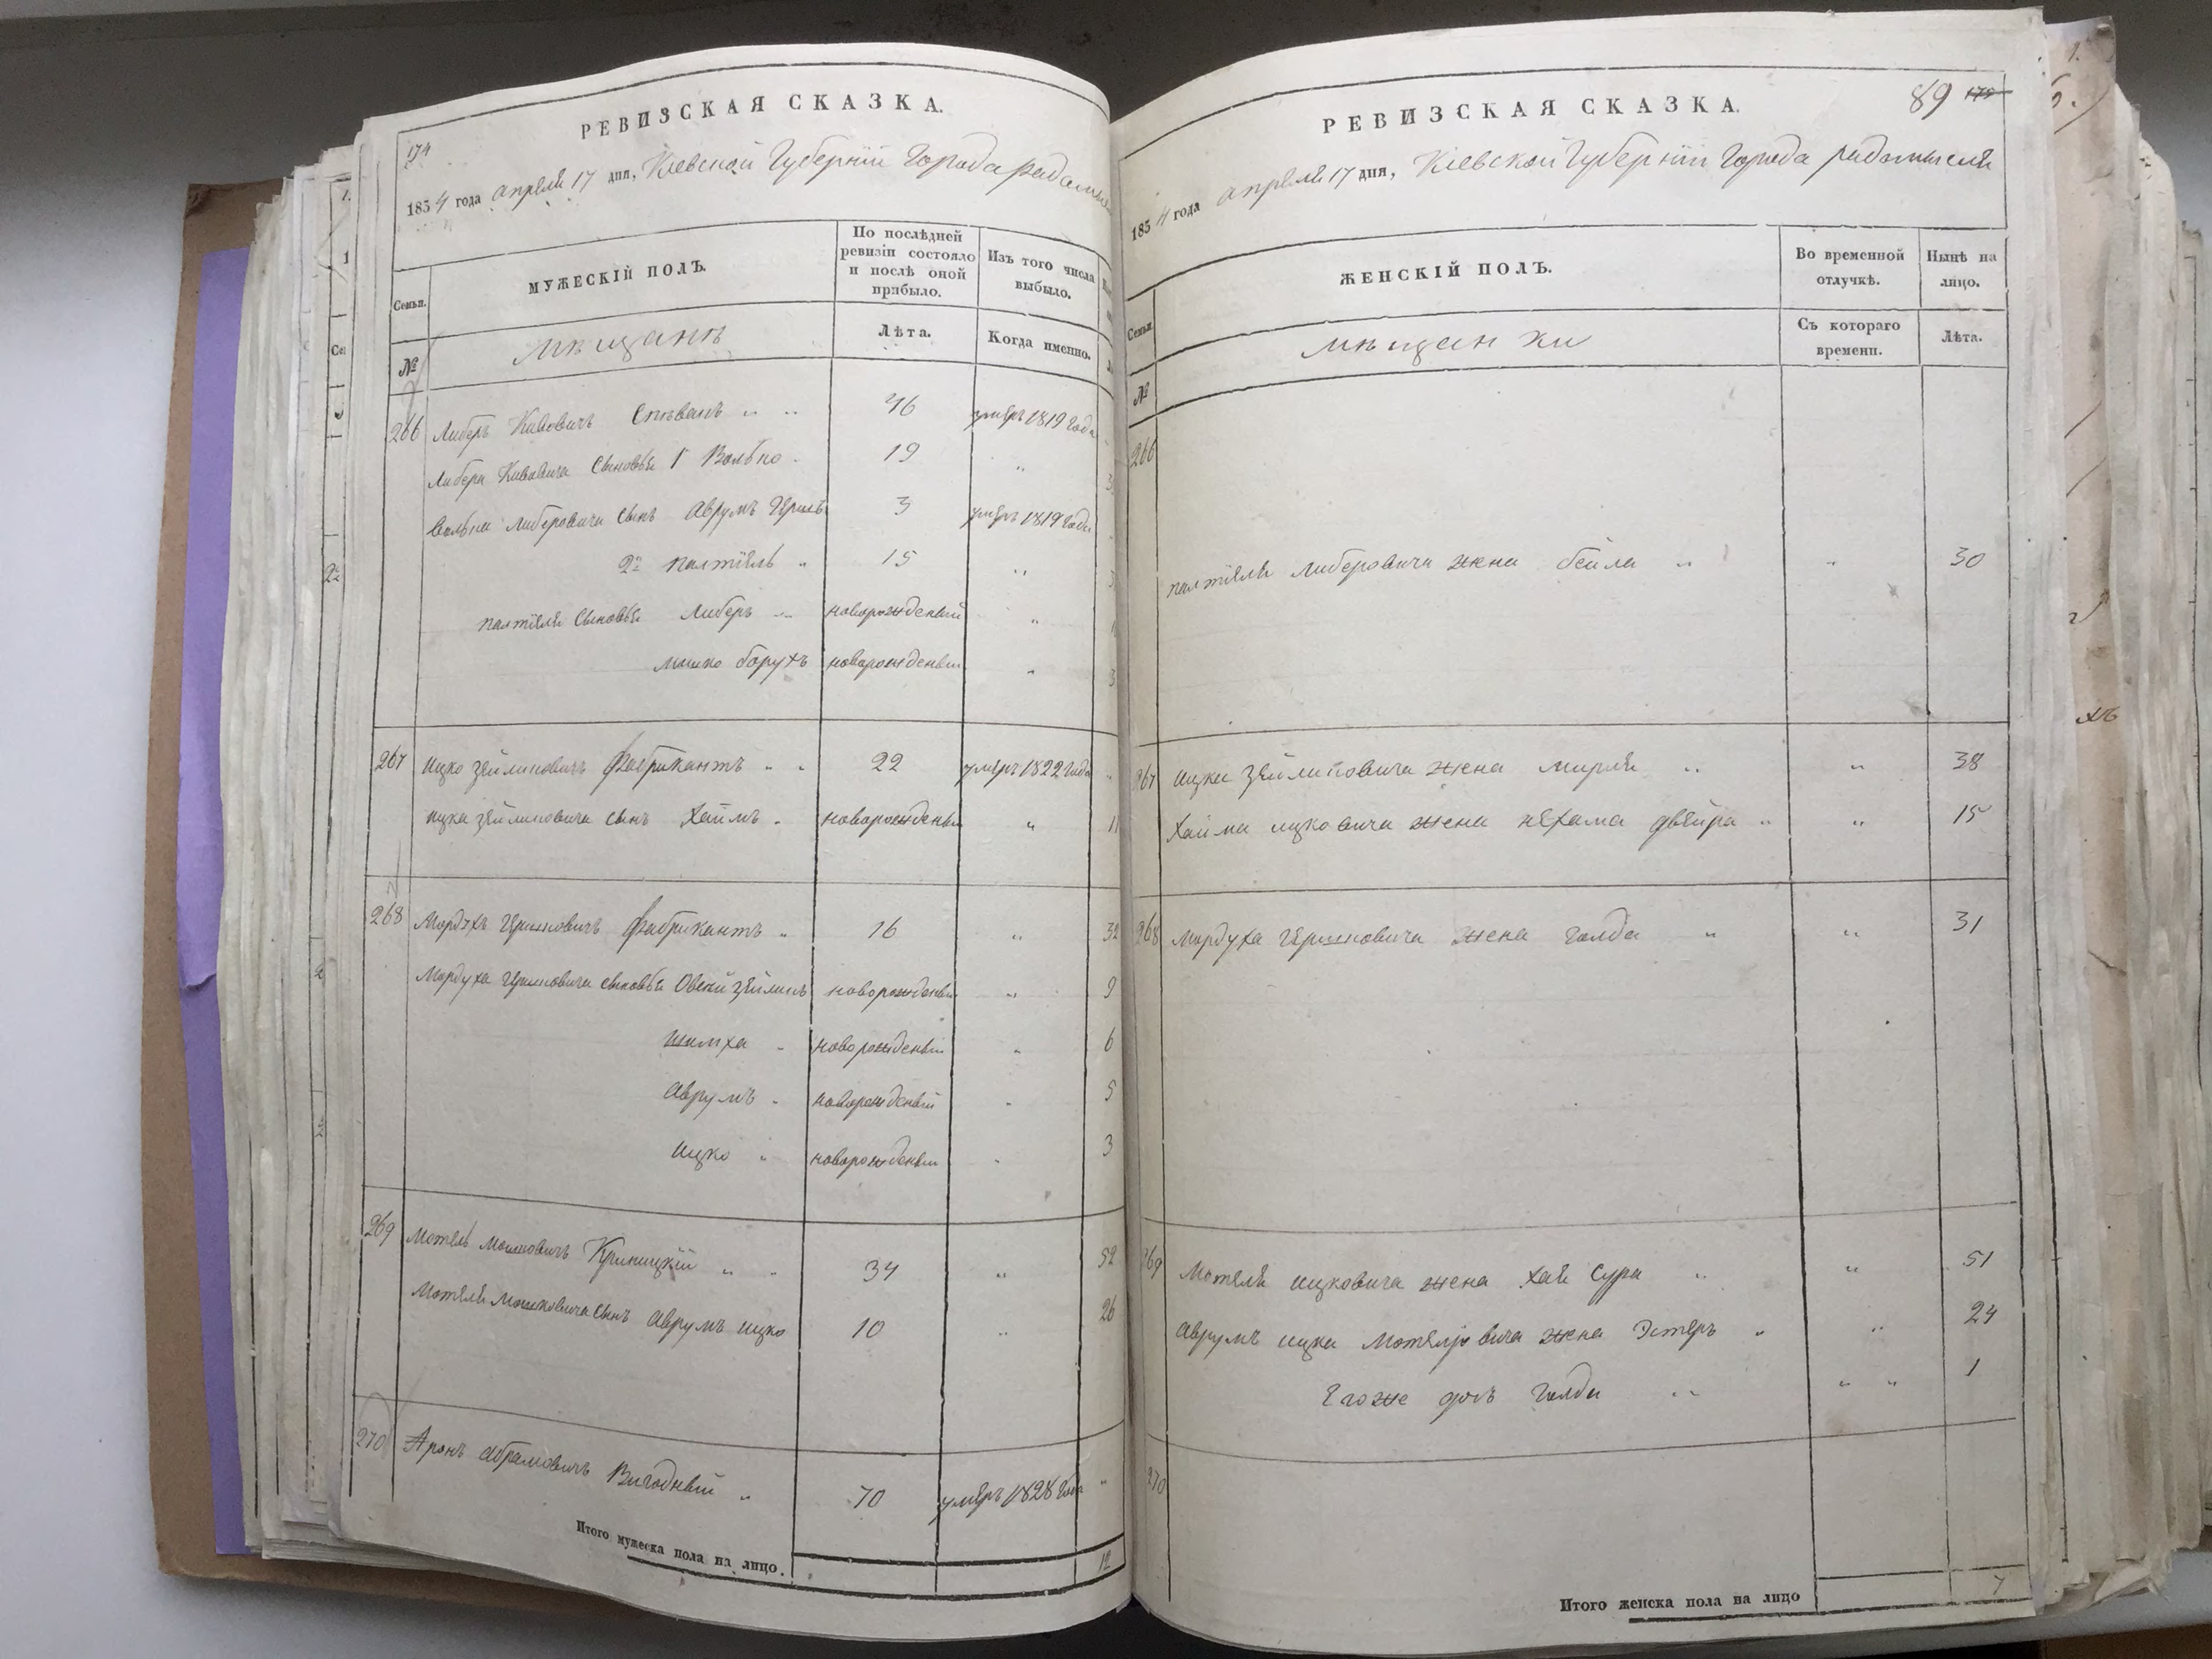 174
РЕВИЗСКАЯ СКАЗКА.
1834 года апреля 17 дня, Кіевской Губерніи Города радомысля
Семьи.
МУЖЕСКІЙ ПОЛЪ.
По послѣдней ревизіи состояло и послѣ оной прибыло.
Изъ того числа выбыло.
№
мѣщанъ
Лѣта.
Когда именно.
266 Либеръ Кивовичъ Спѣвакъ " " 46 умеръ 1819 года
Либера Кивовича сыновья 1й Волько 19 "
Волька Либеровича сынъ Аврумъ Гершъ 3 умеръ 1819 года
2й палтіель " 15 "
палтіеля сыновья Либеръ " новорожденый "
мошко борухъ новорожденый "
267 ицко зейликовичъ Фабрикантъ " " 22 умеръ 1822 года "
ицка зейликовича сынъ Хаимъ " новорожденый " 11
268 Мордухъ Гершковичъ Фабрикантъ " 16 " 32
Мордуха Гершковича сыновья Овсей зейликъ новорожденый " 9
шимха " новорожденый " 6
аврумъ " новорожденый " 5
ицко " новорожденый " 3
269 Мотель Мошковичъ Криницкій " " 34 " 52
Мотеля Мошковича сынъ аврумъ ицко 10 " 26
270 Аронъ абрамовичъ Вигодный " 70 умеръ 1828 года "
Итого мужеска пола на лицо. 12
89 175
РЕВИЗСКАЯ СКАЗКА.
1834 года апреля 17 дня, Кіевской Губерніи Города радомысля
Семьи.
ЖЕНСКІЙ ПОЛЪ.
Во временной отлучкѣ.
Нынѣ на лицо.
№
мѣщанки
Съ котораго времени.
Лѣта.
266
палтіеля Либеровича жена бейла " " 30
267 ицка зейликовича жена мирля " " 38
Хаима ицковича жена нехама двейра " " 15
268 мордуха Гершковича жена Голда " " 31
269 Мотеля ицковича жена хая сура " " 51
аврумъ ицка Мотелювича жена Эстеръ " " 24
Егоже дочь Голда " " " 1
270
Итого женска пола на лицо 7